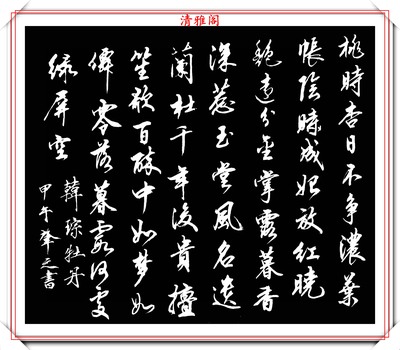 清雅阁
桃時杏日不争濃葉
帳陰成始放紅曉
艷遠分金掌露暮香
深惹玉堂風名遗
蘭杜千年後貴擅
笙歌百醉中如夢如
僊零落暮霞何處
緑屏空
韓琮牡丹
甲午之書